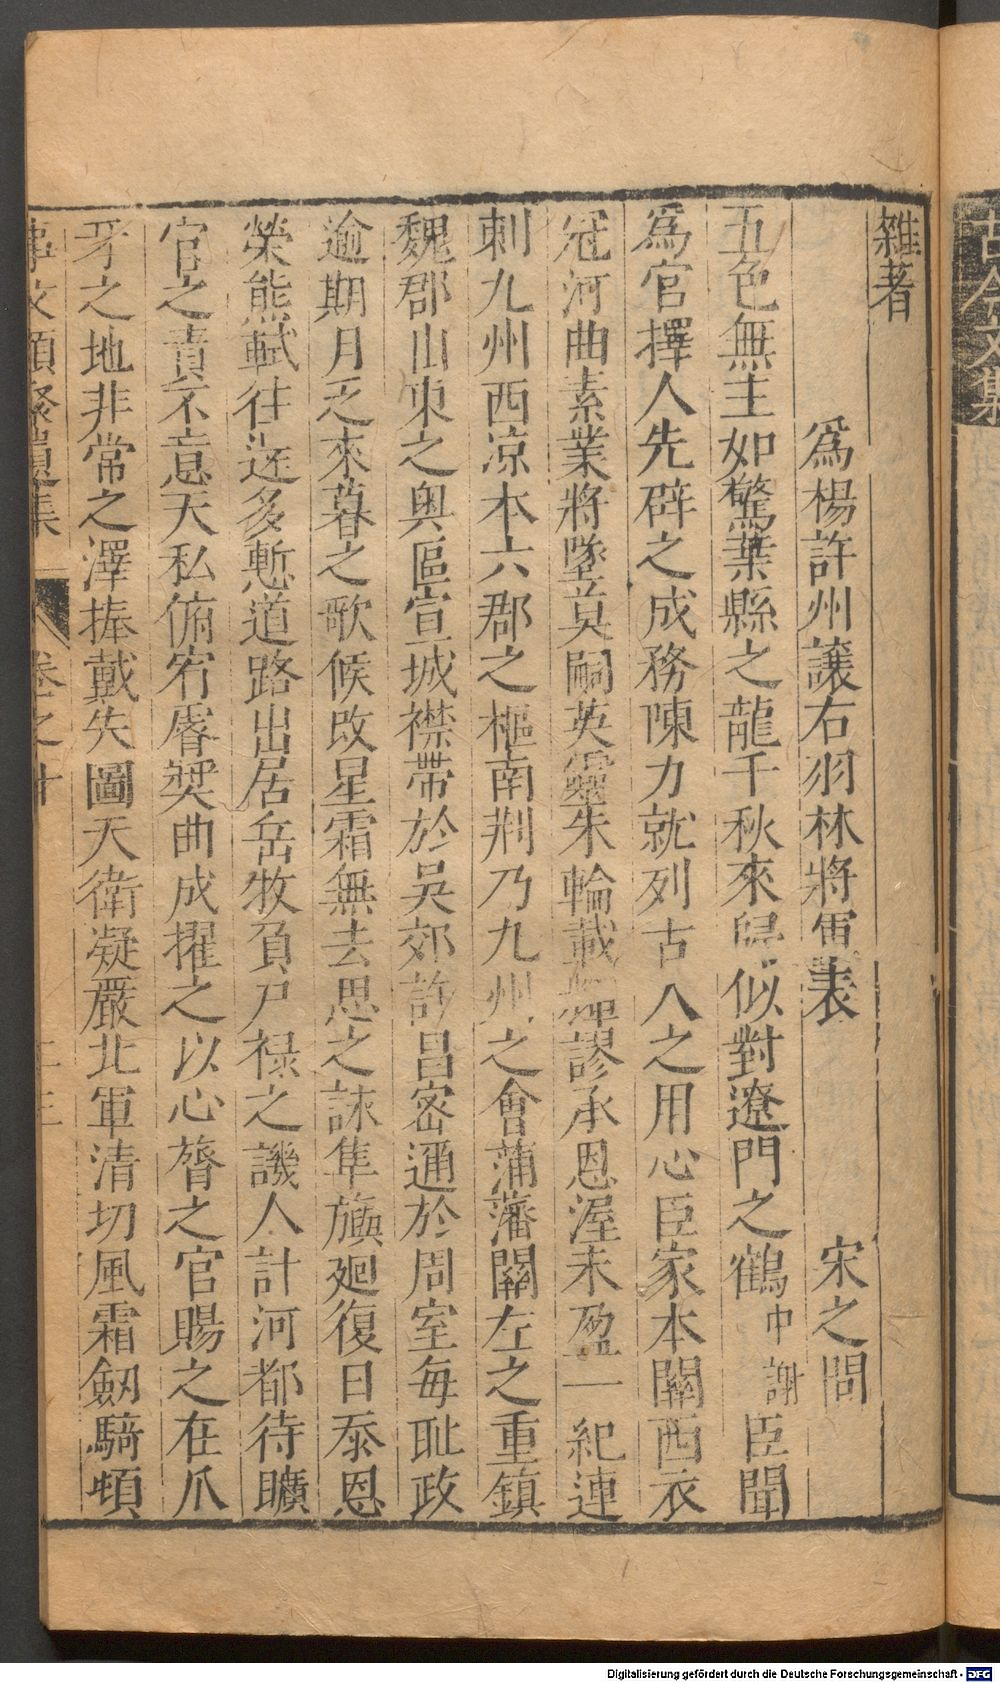 雜著
爲楊許州讓右羽林將軍表　宋之問
五色無主如驚葉縣之龍千秋來歸似對遼門之鶴中謝臣聞
爲官擇人先辟之成務陳力就列古人之用心臣家本關西衣
冠河曲素業將墜莫嗣英靈朱輪載輝謬承恩渥未盈一紀連
刺九州西凉本六郡之樞南荆乃九州之會蒲藩關左之重鎮
魏郡山東之奥區宣城襟帶於吳郊許昌密通於周室每耻政
逾期月乏來暮之歌候改星霜無去思之詠隼旟廻復日忝恩
榮熊軾往逕多慙道路出居岳牧負尸禄之譏人計河都待曠
官之責不意天私俯宥辱奬曲成擢之以心膂之官賜之在爪
牙之地非常之澤捧戴失圖天衛凝嚴北軍清切風霜劔騎頓
事文類聚遺集 卷之十 二三
古今文集
Digitalisierung gefördert durch die Deutsche Forschungsgemeinschaft - DFG